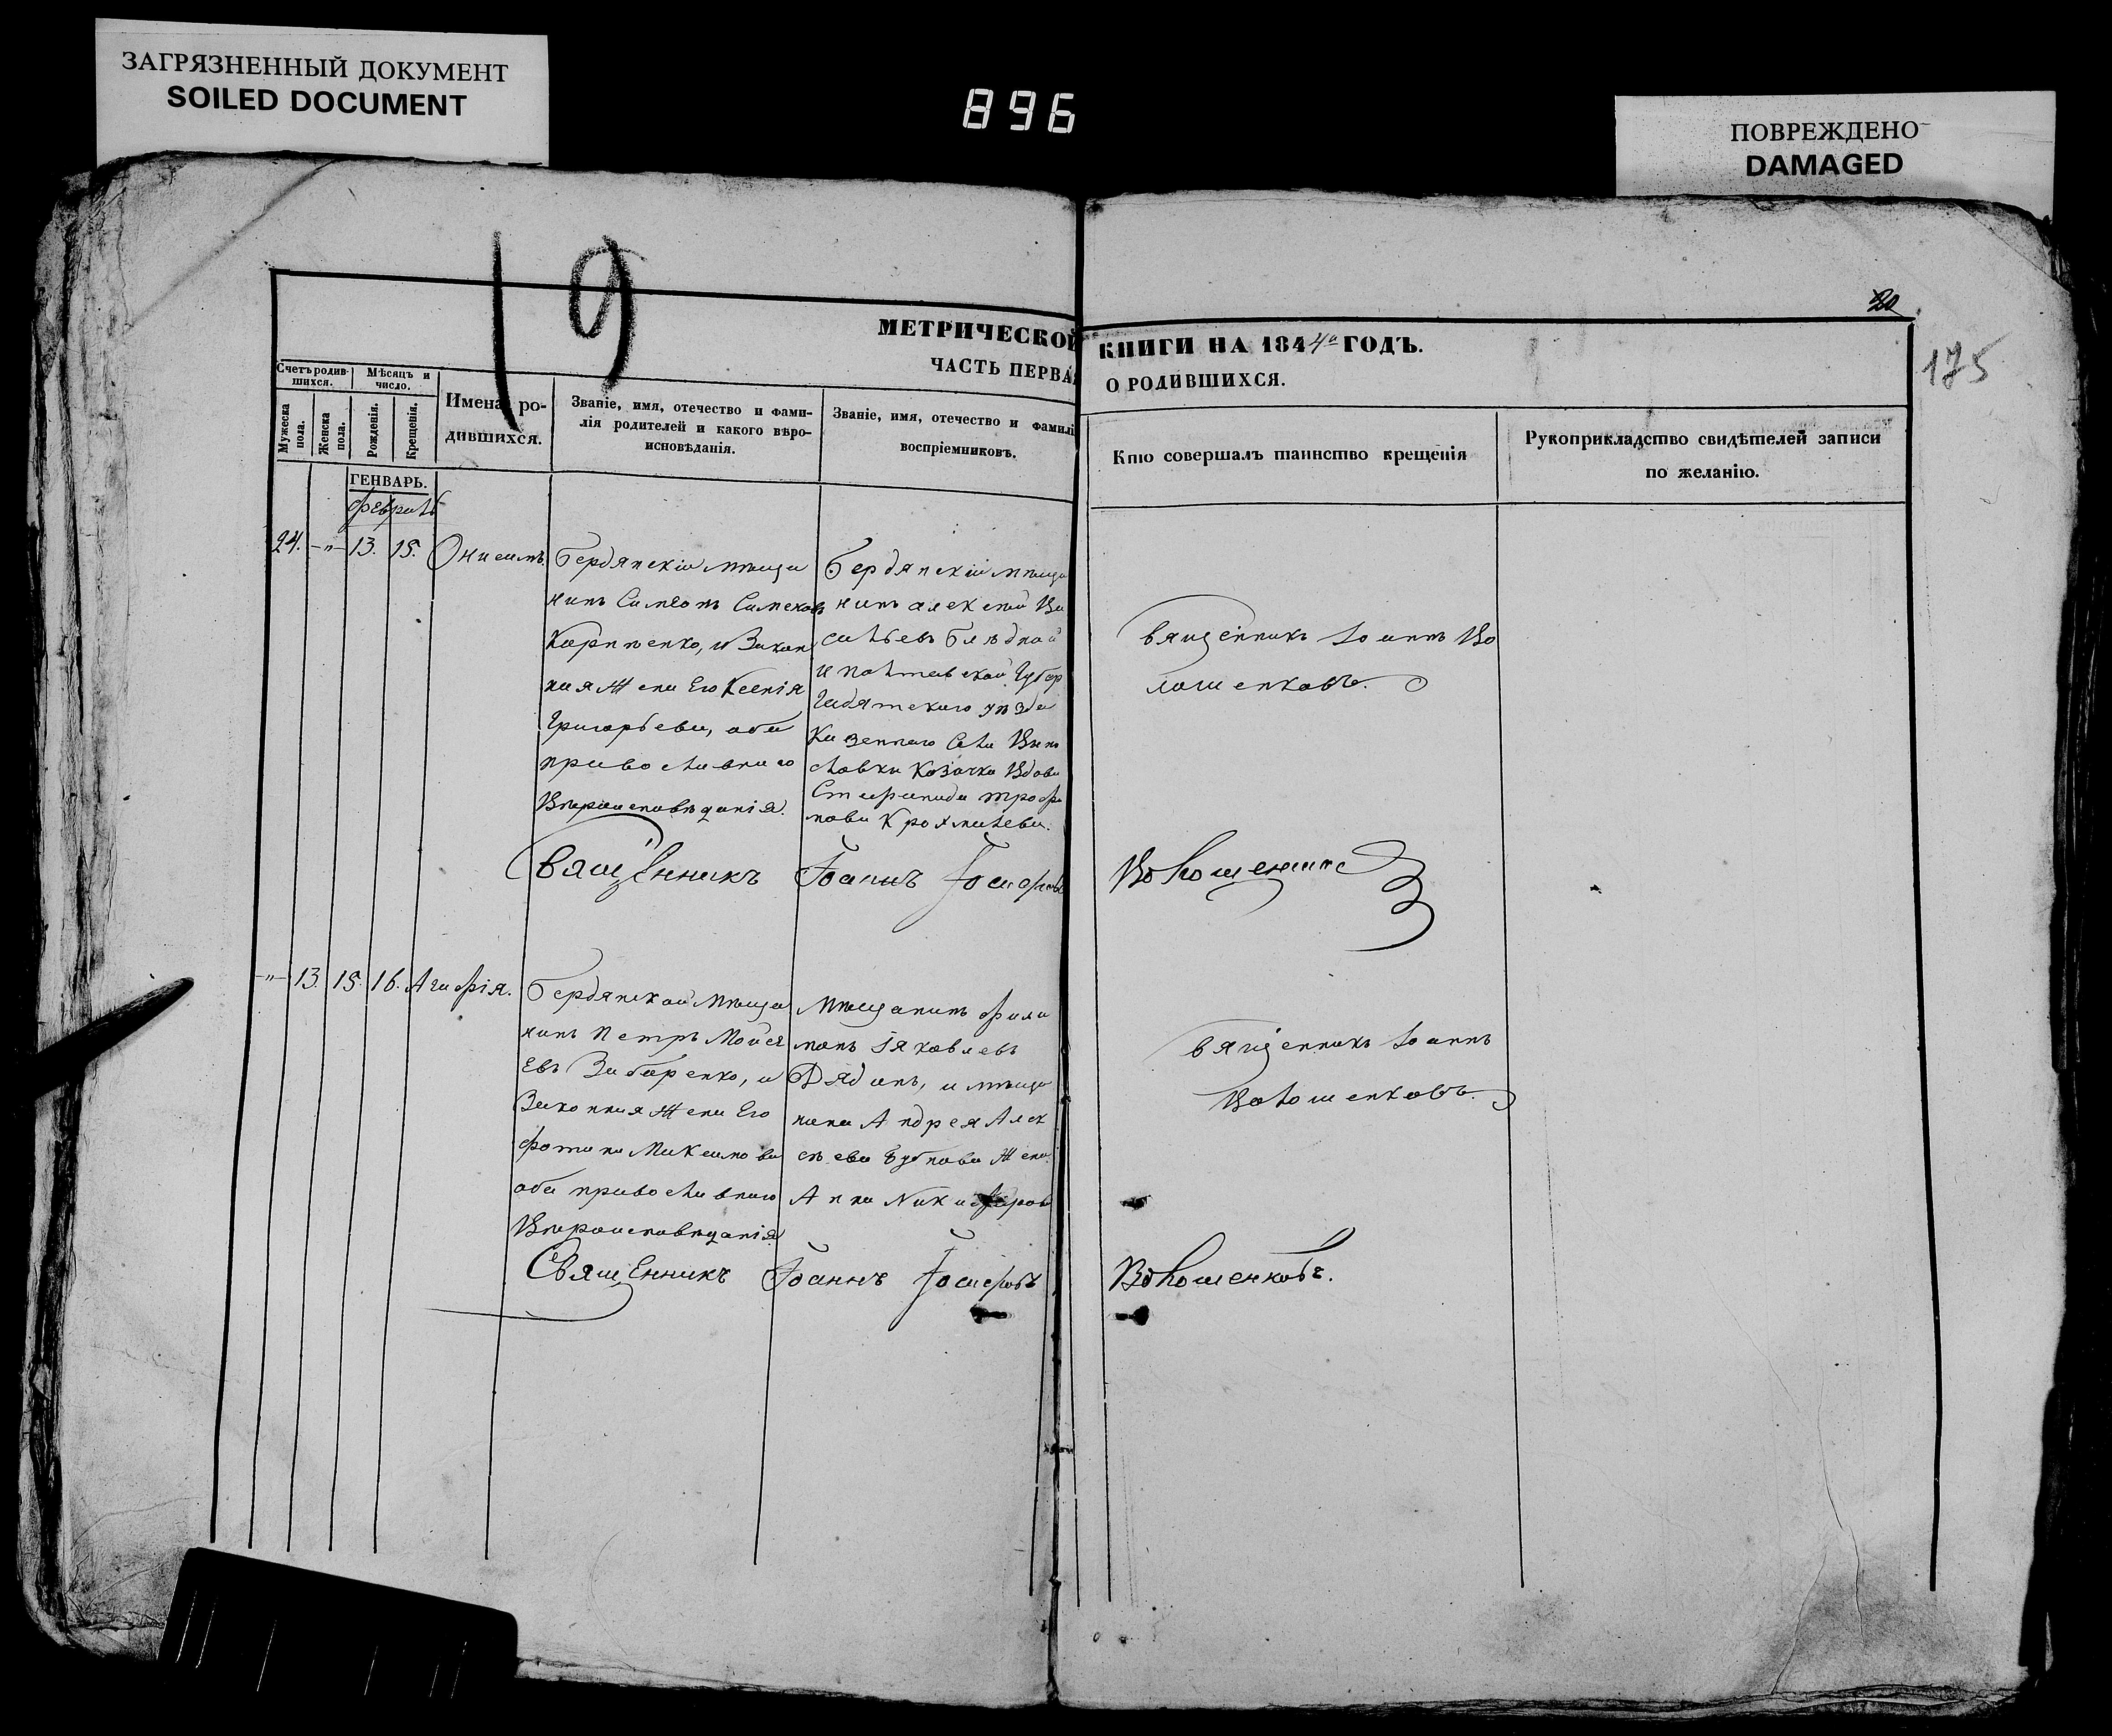 ЗАГРЯЗНЕННЫЙ ДОКУМЕНТ
SOILED DOCUMENT
896
ПОВРЕЖДЕНО
DAMAGED
19
20
175
МЕТРИЧЕСКОЙ КНИГИ НА 1844го ГОДЪ.
ЧАСТЬ ПЕРВАЯ О РОДИВШИХСЯ.
Счетъ родившихся.
Мѣсяцъ и число.
Мужеска пола.
Женска пола.
Рожденія.
Крещенія.
Имена родившихся.
Званіе, имя, отечество и фамилія родителей и какого вѣроисновѣданія.
Званіе, имя, отечество и фамилі
воспріемниковъ.
Кто совершалъ таинство крещенія
Рукоприкладство свидѣтелей записи
по желанію.
ГЕНВАРЬ.
февраль
24. -"- 13. 15. Онисимъ.
Бердянскій мѣща
нинъ Симеонъ Симеоновъ
Карпенко, и Закон
ная Жена Его Ксенія
Григорьева, оба
православнаго
Вѣроисповѣданія.
Бердянскій мѣща
нинъ алексѣй Ва
сильевъ Блѣдной
и полтавской Губер
Гадятскаго уѣзда
Казеннаго Села
славки Козачка Вдова
Стефанида трофи
мова Крохмалева.
Священникъ Іоаннъ Во
лошенковъ.
Священникъ Іоаннъ Іосифовъ Волошенковъ
-"- 13. 15. 16. Агафія.
Бердянской мѣща
нинъ Петръ Мойсе
евъ Забаренко, и
Законная Жена Его
фотина Максимова
оба православнаго
Вѣроисповѣданія
мѣщанинъ фили
монъ Іяковлевъ
Дядинъ, и мѣща
нина Андрея Алек
сѣева Бубнова Жена
Анна Никифоров
Священникъ Іоаннъ
Волошенковъ.
Священникъ Іоаннъ Іосифовъ Волошенковъ.